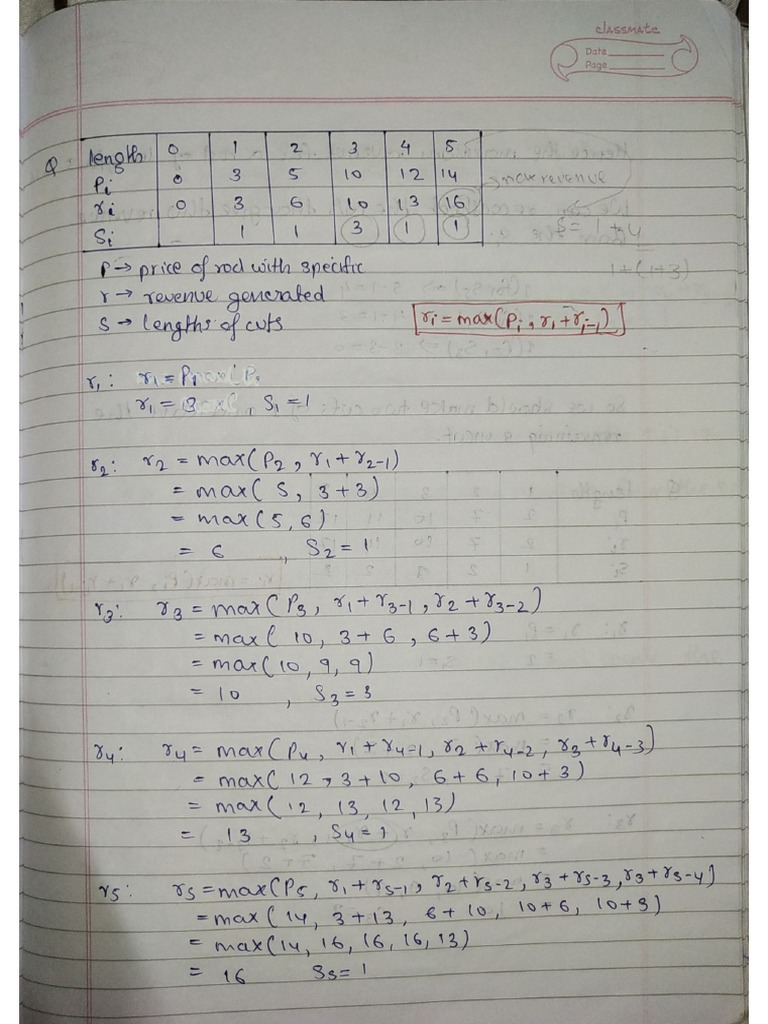 classmate
Date
Page
Q. length 0 1 2 3 4 5
Pi 0 3 5 10 12 14
ri 0 3 6 10 13 16 → max revenue
Si 1 1 3 1 1
5 = 1 + 4
1 + (1+3)
P → price of rod with specific
r → revenue generated
S → lengths of cuts
ri = max(Pi, r1 + ri-1)
r1: r1 = P1
r1 = 3, S1 = 1
r2: r2 = max(P2, r1 + r2-1)
= max(5, 3+3)
= max(5, 6)
= 6, S2 = 1
r3: r3 = max(P3, r1 + r3-1, r2 + r3-2)
= max(10, 3+6, 6+3)
= max(10, 9, 9)
= 10, S3 = 3
r4: r4 = max(P4, r1 + r4-1, r2 + r4-2, r3 + r4-3)
= max(12, 3+10, 6+6, 10+3)
= max(12, 13, 12, 13)
= 13, S4 = 1
r5: r5 = max(P5, r1 + r5-1, r2 + r5-2, r3 + r5-3, r3 + r5-4)
= max(14, 3+13, 6+10, 10+6, 10+3)
= max(14, 16, 16, 16, 13)
= 16 S5 = 1